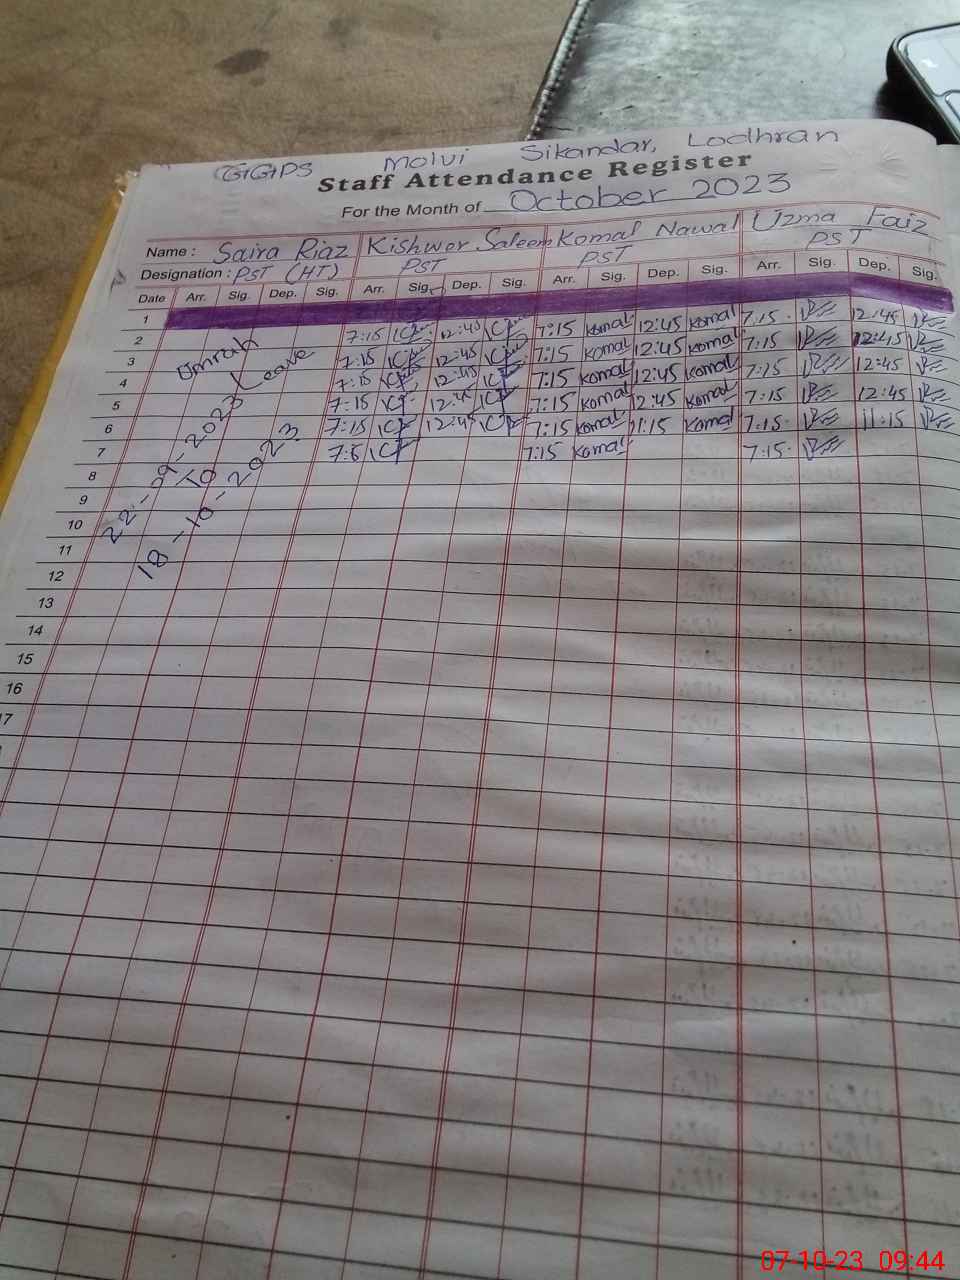 GGPS Molvi Sikandar, Lodhran
Staff Attendance Register
For the Month of October 2023
Name : Saira Riaz Kishwer Saleem Komal Nawal Uzma Faiz
Designation : PST (HT) PST PST PST
Date Arr. Sig. Dep. Sig. Arr. Sig. Dep. Sig. Arr. Sig. Dep. Sig. Arr. Sig. Dep. Sig.
1
2 7:15 12:45 7:15 Komal 12:45 Komal 7:15 12:45
3 7:15 12:45 7:15 Komal 12:45 Komal 7:15 12:45
4 7:15 12:45 7:15 Komal 12:45 Komal 7:15 12:45
5 7:15 12:45 7:15 Komal 12:45 Komal 7:15 12:45
6 7:15 12:45 7:15 Komal 11:15 Komal 7:15 11:15
7 7:15 Komal 7:15
8
9
10
11
12
13
14
15
16
17
Umrah Leave
22-09-2023
To
18-10-2023
07-10-23 09:44